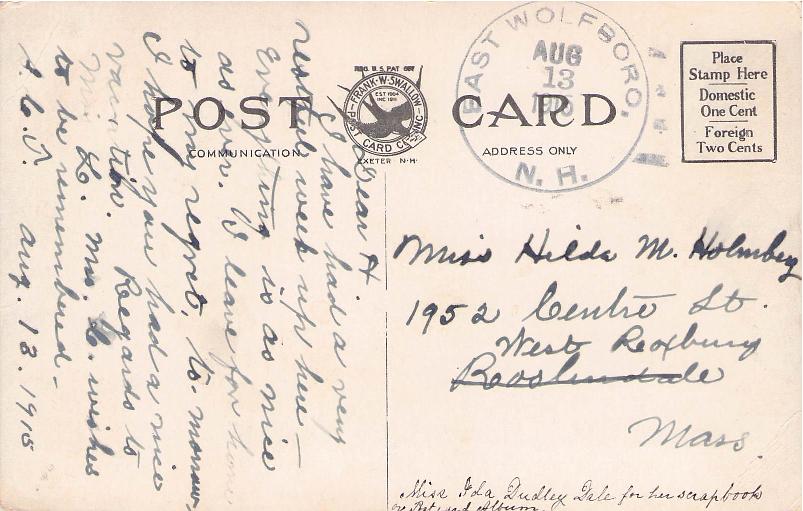 POST CARD
COMMUNICATION
ADDRESS ONLY
REG. U.S. PAT OFF
FRANK·W·SWALLOW
EST 1904
INC 1911
POST CARD CO. INC
EXETER N·H·
EAST WOLFBORO,
AUG
13
N. H.
Place
Stamp Here
Domestic
One Cent
Foreign
Two Cents
Dear H
I have had a very
restful week up here —
Everything is as nice
as ever. I leave for home
to my regret, to-morrow.
I hope you had a nice
vacation. Regards to
Mrs. L. wishes
to be remembered —
Aug. 13. 1915
Miss Hilda M. Holmberg
1952 Centre St.
West Roxbury
Roslindale
Mass.
Miss Ida Dudley Dale for her scrapbook
or Postcard Album.